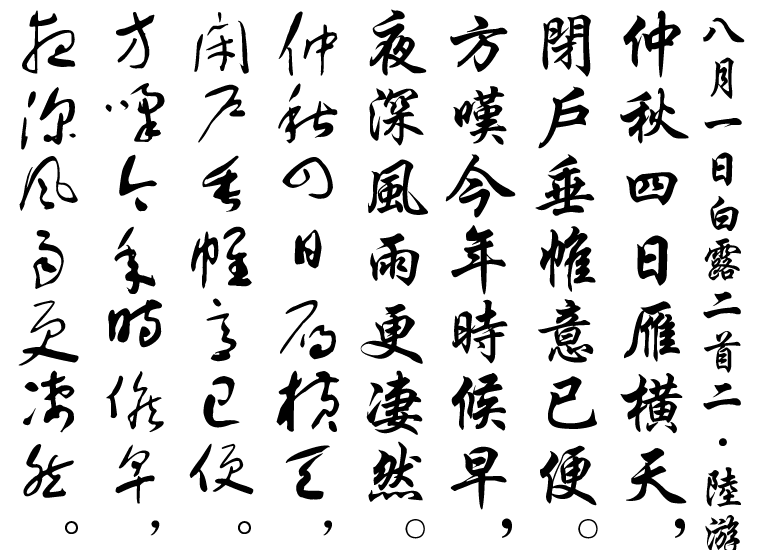 八月一日白露二首二·陸游
仲秋四日雁橫天，
閉戶垂帷意已便。
方嘆今年時候早，
夜深風雨更凄然。
仲秋四日雁橫天，
閉戶垂帷意已便。
方嘆今年時候早，
夜深風雨更凄然。